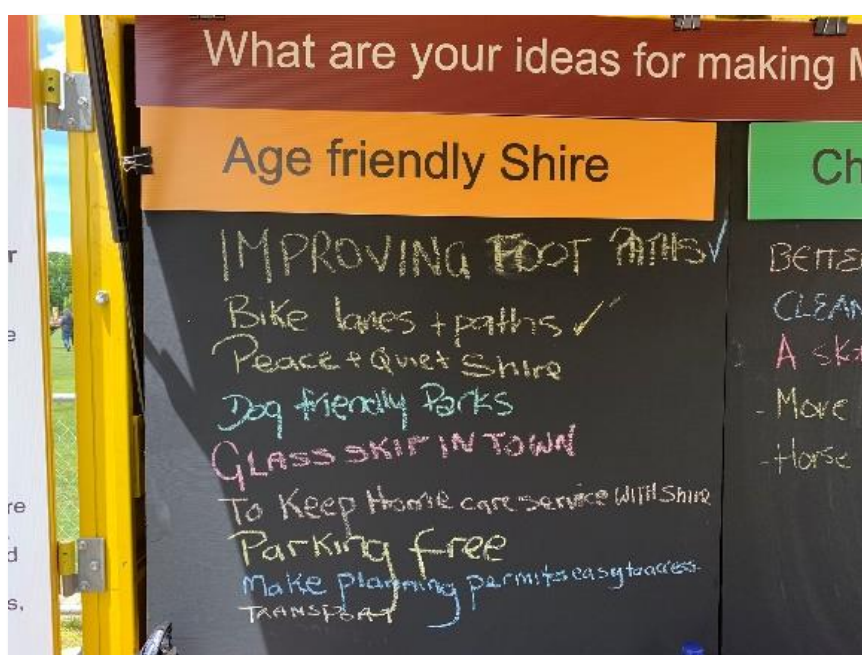 What are your ideas for making M
Age friendly Shire
IMPROVING FOOT PATHS ✓
Bike lanes + paths ✓
Peace + Quiet Shire
Dog friendly Parks
GLASS SKIP IN TOWN
To Keep Home care service WITH Shire
Parking free
Make planning permits easy to access.
TRANSPORT
Ch
BETTE
CLEAN
A sk
- More
- Horse
r
e
re
d
s.